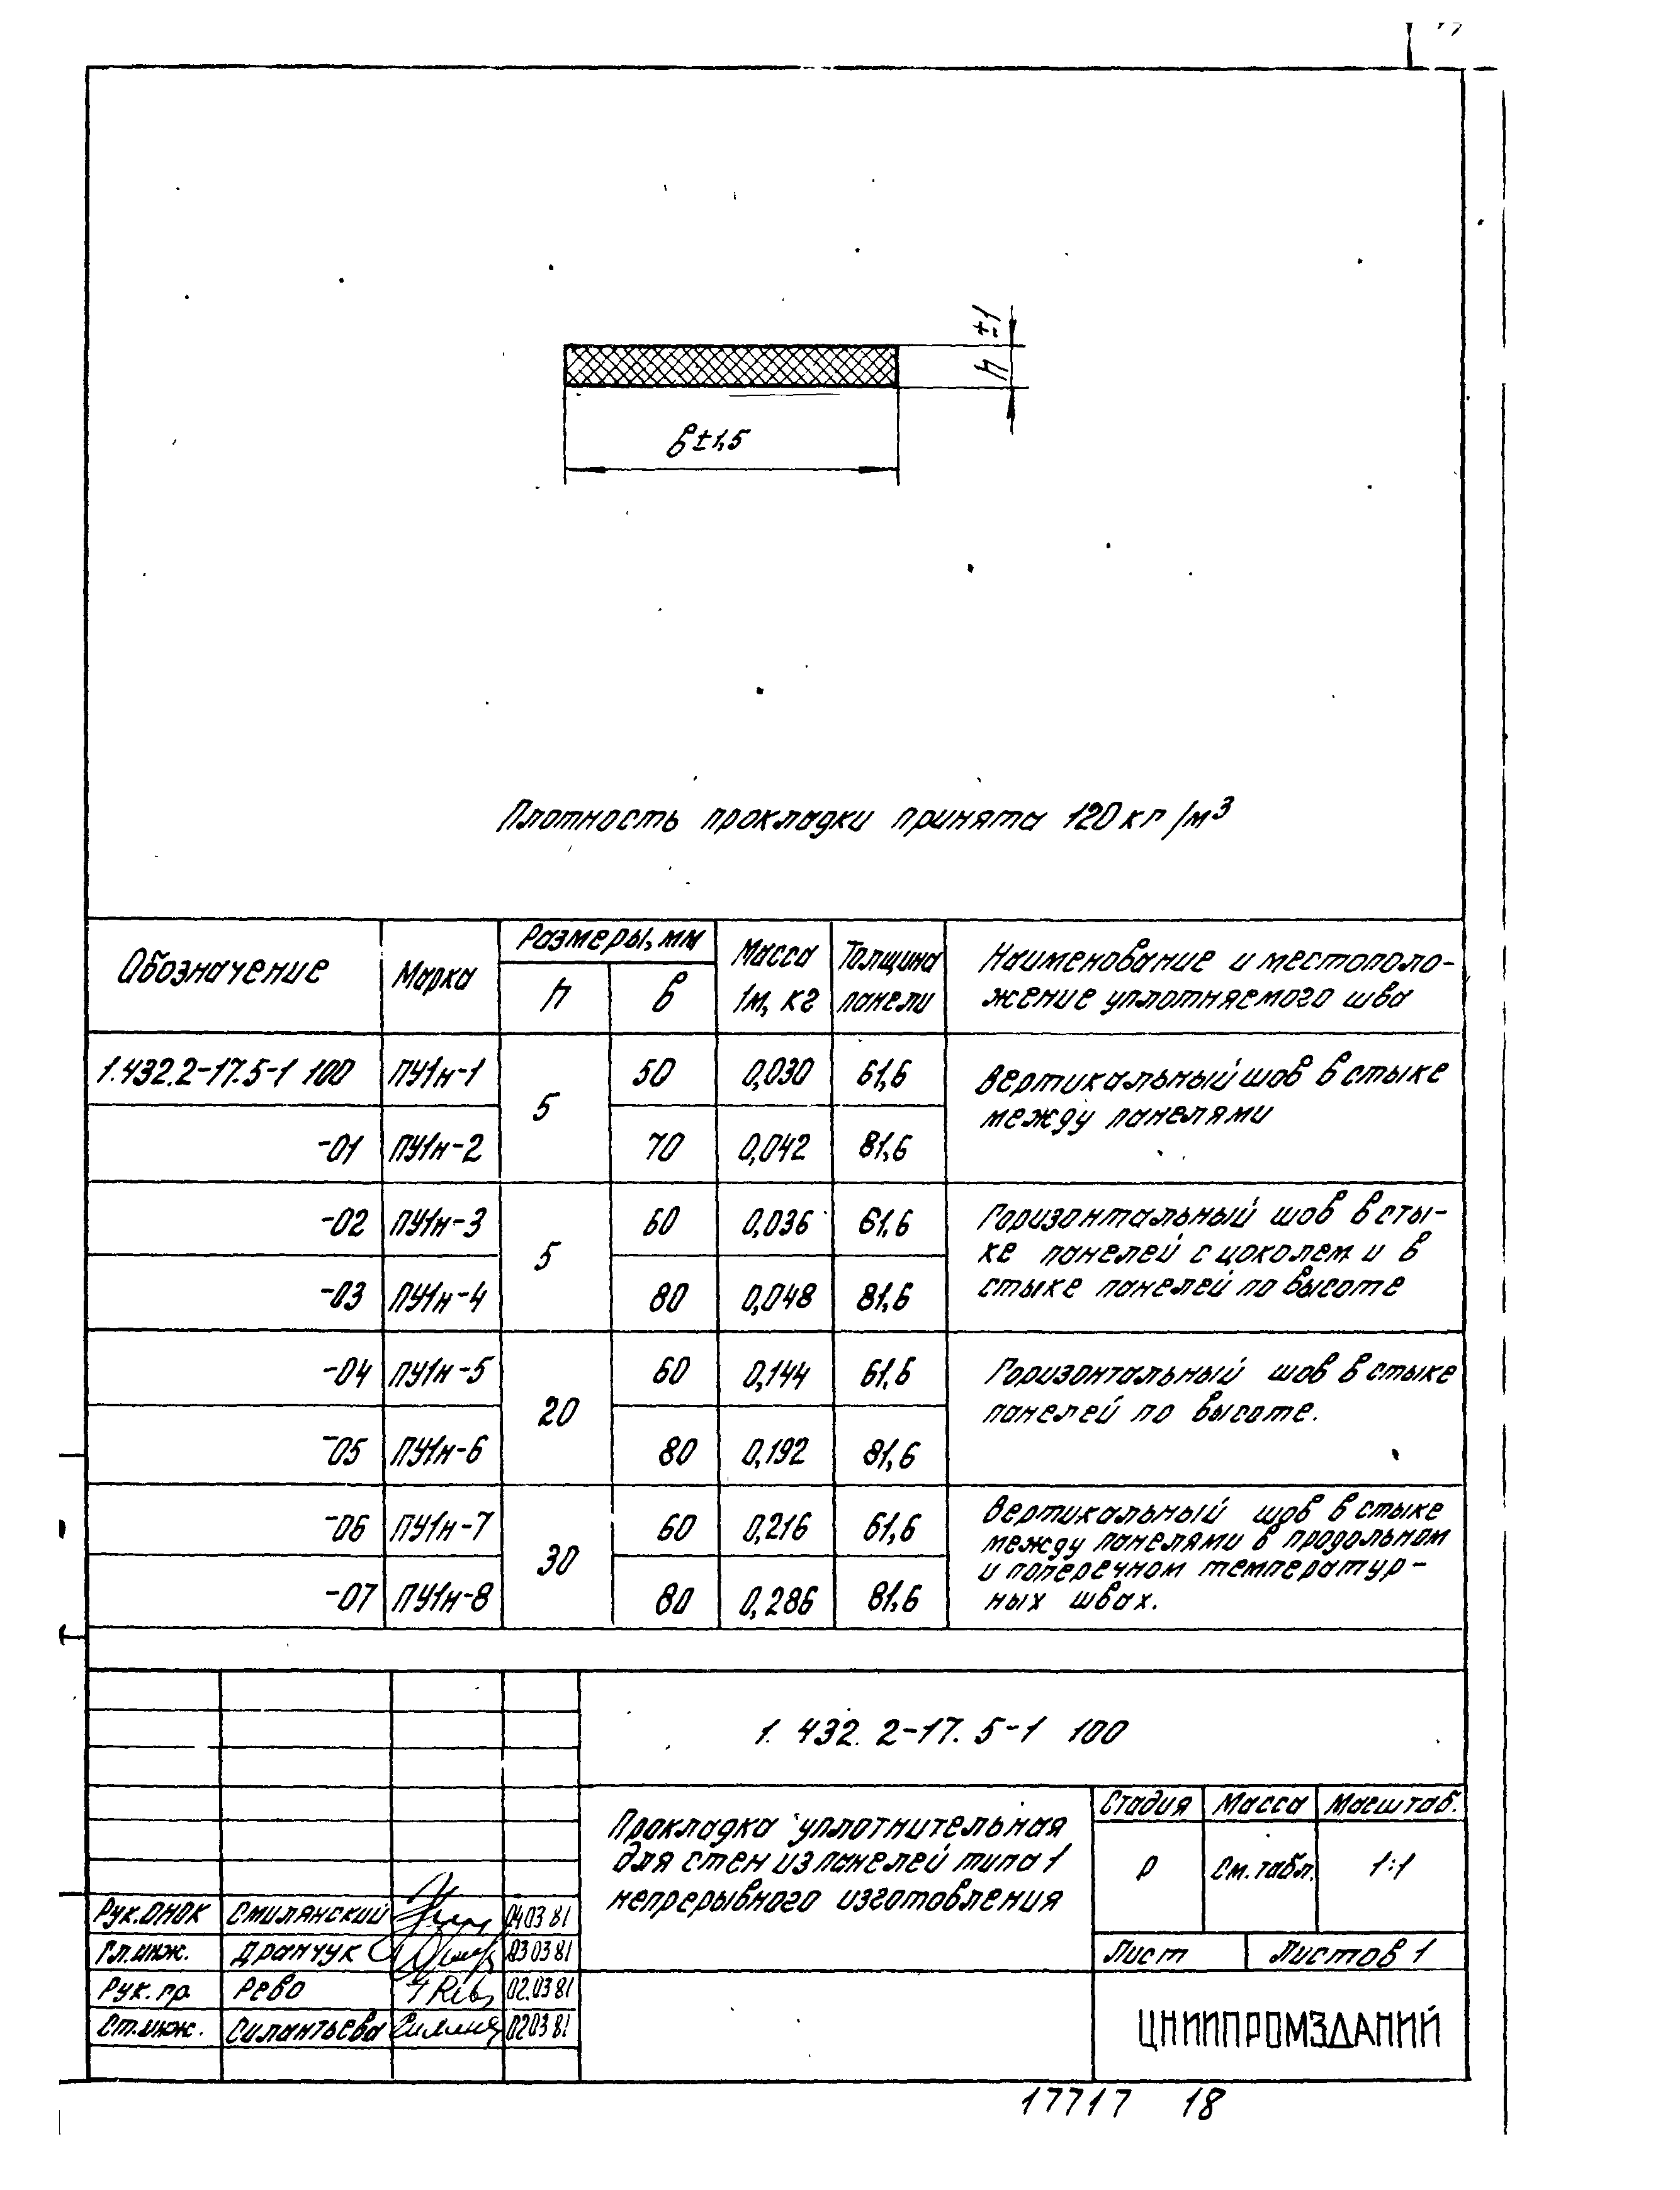 h ±1
в±1,5
Плотность прокладки принята 120 кг/м³
Обозначение Марка Размеры, мм Масса 1м, кг Толщина панели Наименование и местополо-
жение уплотняемого шва
h в
1.432.2-17.5-1 100 ПУ1н-1 5 50 0,030 61,6 Вертикальный шов в стыке
между панелями
-01 ПУ1н-2 70 0,042 81,6
-02 ПУ1н-3 5 60 0,036 61,6 Горизонтальный шов в сты-
ке панелей с цоколем и в
-03 ПУ1н-4 80 0,048 81,6 стыке панелей по высоте
-04 ПУ1н-5 20 60 0,144 61,6 Горизонтальный шов в стыке
панелей по высоте.
-05 ПУ1н-6 80 0,192 81,6
-06 ПУ1н-7 30 60 0,216 61,6 Вертикальный шов в стыке
между панелями в продольном
и поперечном температур-
-07 ПУ1н-8 80 0,286 81,6 ных швах.
1.432.2-17.5-1 100
Прокладка уплотнительная
для стен из панелей типа 1
непрерывного изготовления
Стадия Масса Масштаб.
Р См. табл. 1:1
Лист Листов 1
Рук. ОНОК Смилянский 04 03 81
Гл. инж. Дранчук 03 03 81
Рук. гр. Рево 02.03 81
Ст. инж. Силантьева 02 03 81
ЦНИИПРОМЗДАНИЙ
17717 18